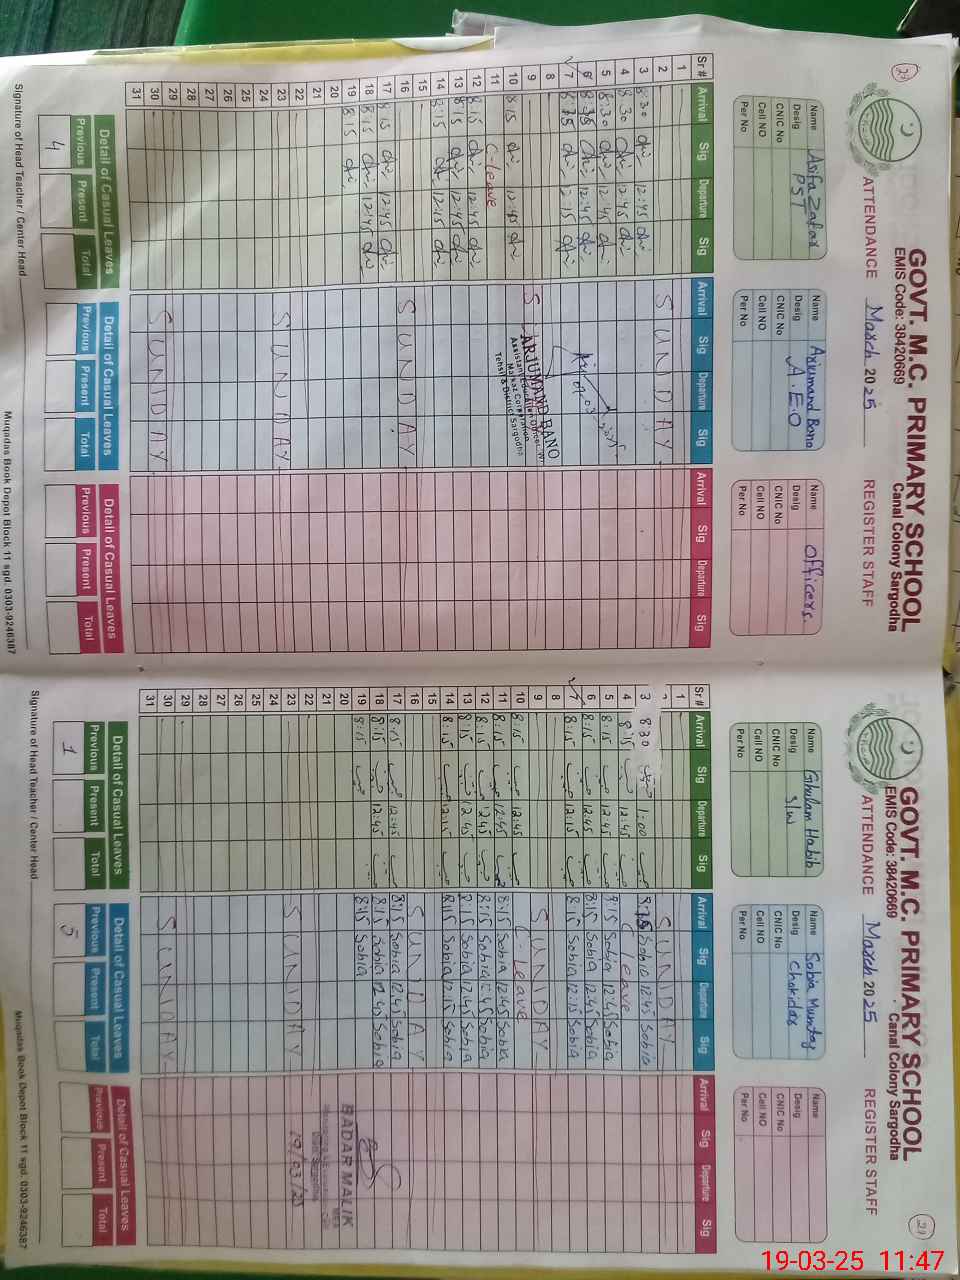 GOVT. M.C. PRIMARY SCHOOL
Canal Colony Sargodha
EMIS Code: 38420669
ATTENDANCE March 2025 REGISTER STAFF
Name Asifa Zafar
Desig PST
CNIC No
Cell NO
Per No
Name Arjumand Bano
Desig A.E.O
CNIC No
Cell NO
Per No
Name Officers.
Desig
CNIC No
Cell NO
Per No
Sr # Arrival Sig Departure Sig Arrival Sig Departure Sig Arrival Sig Departure Sig
1
2 SUNDAY
3 8:30 12:45
4 8:30 12:45
5 8:30 12:45
6 12:45
7 12:15
8
9 S
10 8:15 12:45
11 C-leave
12 8:15 12:45
13 8:15 12:45
14 8:15 12:15
15
16 SUNDAY
17 8:15 12:45
18 8:15 12:45
19 8:15
20
21
22
23 SUNDAY
24
25
26
27
28
29
30 SUNDAY
31
ARJUMAND BANO
Assistant Education Officer-W
Markaz Corporation
Tehsil & District Sargodha
Detail of Casual Leaves
Previous Present Total
4
Detail of Casual Leaves
Previous Present Total
Detail of Casual Leaves
Previous Present Total
Signature of Head Teacher / Center Head
Muqadas Book Depot Block 11 sgd. 0303-9246387
GOVT. M.C. PRIMARY SCHOOL
Canal Colony Sargodha
EMIS Code: 38420669
ATTENDANCE March 2025 REGISTER STAFF
Name Ghulam Habib
Desig S/W
CNIC No
Cell NO
Per No
Name Sobia Mumtaz
Desig Chokidar
CNIC No
Cell NO
Per No
Name
Desig
CNIC No
Cell NO
Per No
Sr # Arrival Sig Departure Sig Arrival Sig Departure Sig Arrival Sig Departure Sig
1
2 SUNDAY
3 8:30 1:00 Sobia 12:45 Sobia
4 8:15 12:45 C Leave
5 8:15 12:45 8:15 Sobia 12:45 Sobia
6 8:15 12:45 8:15 Sobia 12:45 Sobia
7 8:15 12:15 8:15 Sobia 12:15 Sobia
8
9 SUNDAY
10 8:15 12:45 C-Leave
11 8:15 12:45 8:15 Sobia 12:45 Sobia
12 8:15 12:45 8:15 Sobia 12:45 Sobia
13 8:15 12:45 8:15 Sobia 12:45 Sobia
14 8:15 12:15 8:15 Sobia 12:15 Sobia
15
16 SUNDAY
17 8:15 12:45 8:15 Sobia 12:45 Sobia
18 8:15 12:45 8:15 Sobia 12:45 Sobia
19 8:15 8:15 Sobia
20
21
22
23 SUNDAY
24
25
26
27
28
29
30 SUNDAY
31
BADAR MALIK
MEA
19/03/25
Detail of Casual Leaves
Previous Present Total
1
Detail of Casual Leaves
Previous Present Total
5
Detail of Casual Leaves
Previous Present Total
Signature of Head Teacher / Center Head
Muqadas Book Depot Block 11 sgd. 0303-9246387
19-03-25 11:47